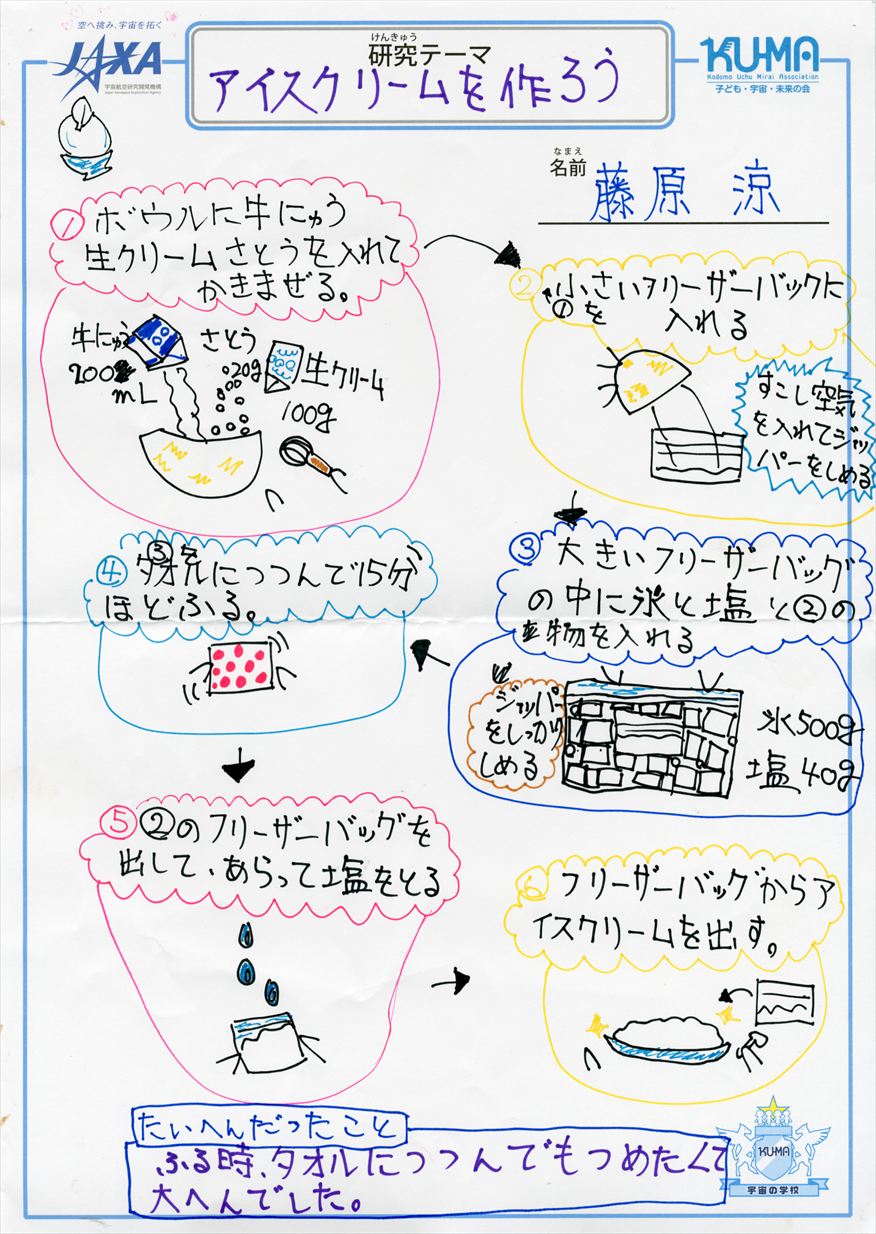 空へ挑み、宇宙を拓く
JAXA
宇宙航空研究開発機構
Japan Aerospace Exploration Agency
けんきゅう
研究テーマ
アイスクリームを作ろう
KU-MA
Kodomo Uchu Mirai Association
子ども・宇宙・未来の会
なまえ
名前
藤原 涼
① ボウルに牛にゅう
生クリームさとうを入れて
かきまぜる。
牛にゅう
200
mL
さとう
20g
生クリーム
100g
② 小さいフリーザーバックに
①を 入れる
すこし空気
を入れてジッ
パーをしめる
③ 大きいフリーザーバッグ
の中に氷と塩と②の
物を入れる
ジッパー
をしっかり
しめる
氷500g
塩40g
④ ③
タオルにつつんで15分
ほどふる。
⑤ ②のフリーザーバッグを
出して、あらって塩をとる
⑥ フリーザーバッグからア
イスクリームを出す。
たいへんだったこと
ふる時、タオルにつつんでもつめたくて
大へんでした。
KU-MA
宇宙の学校